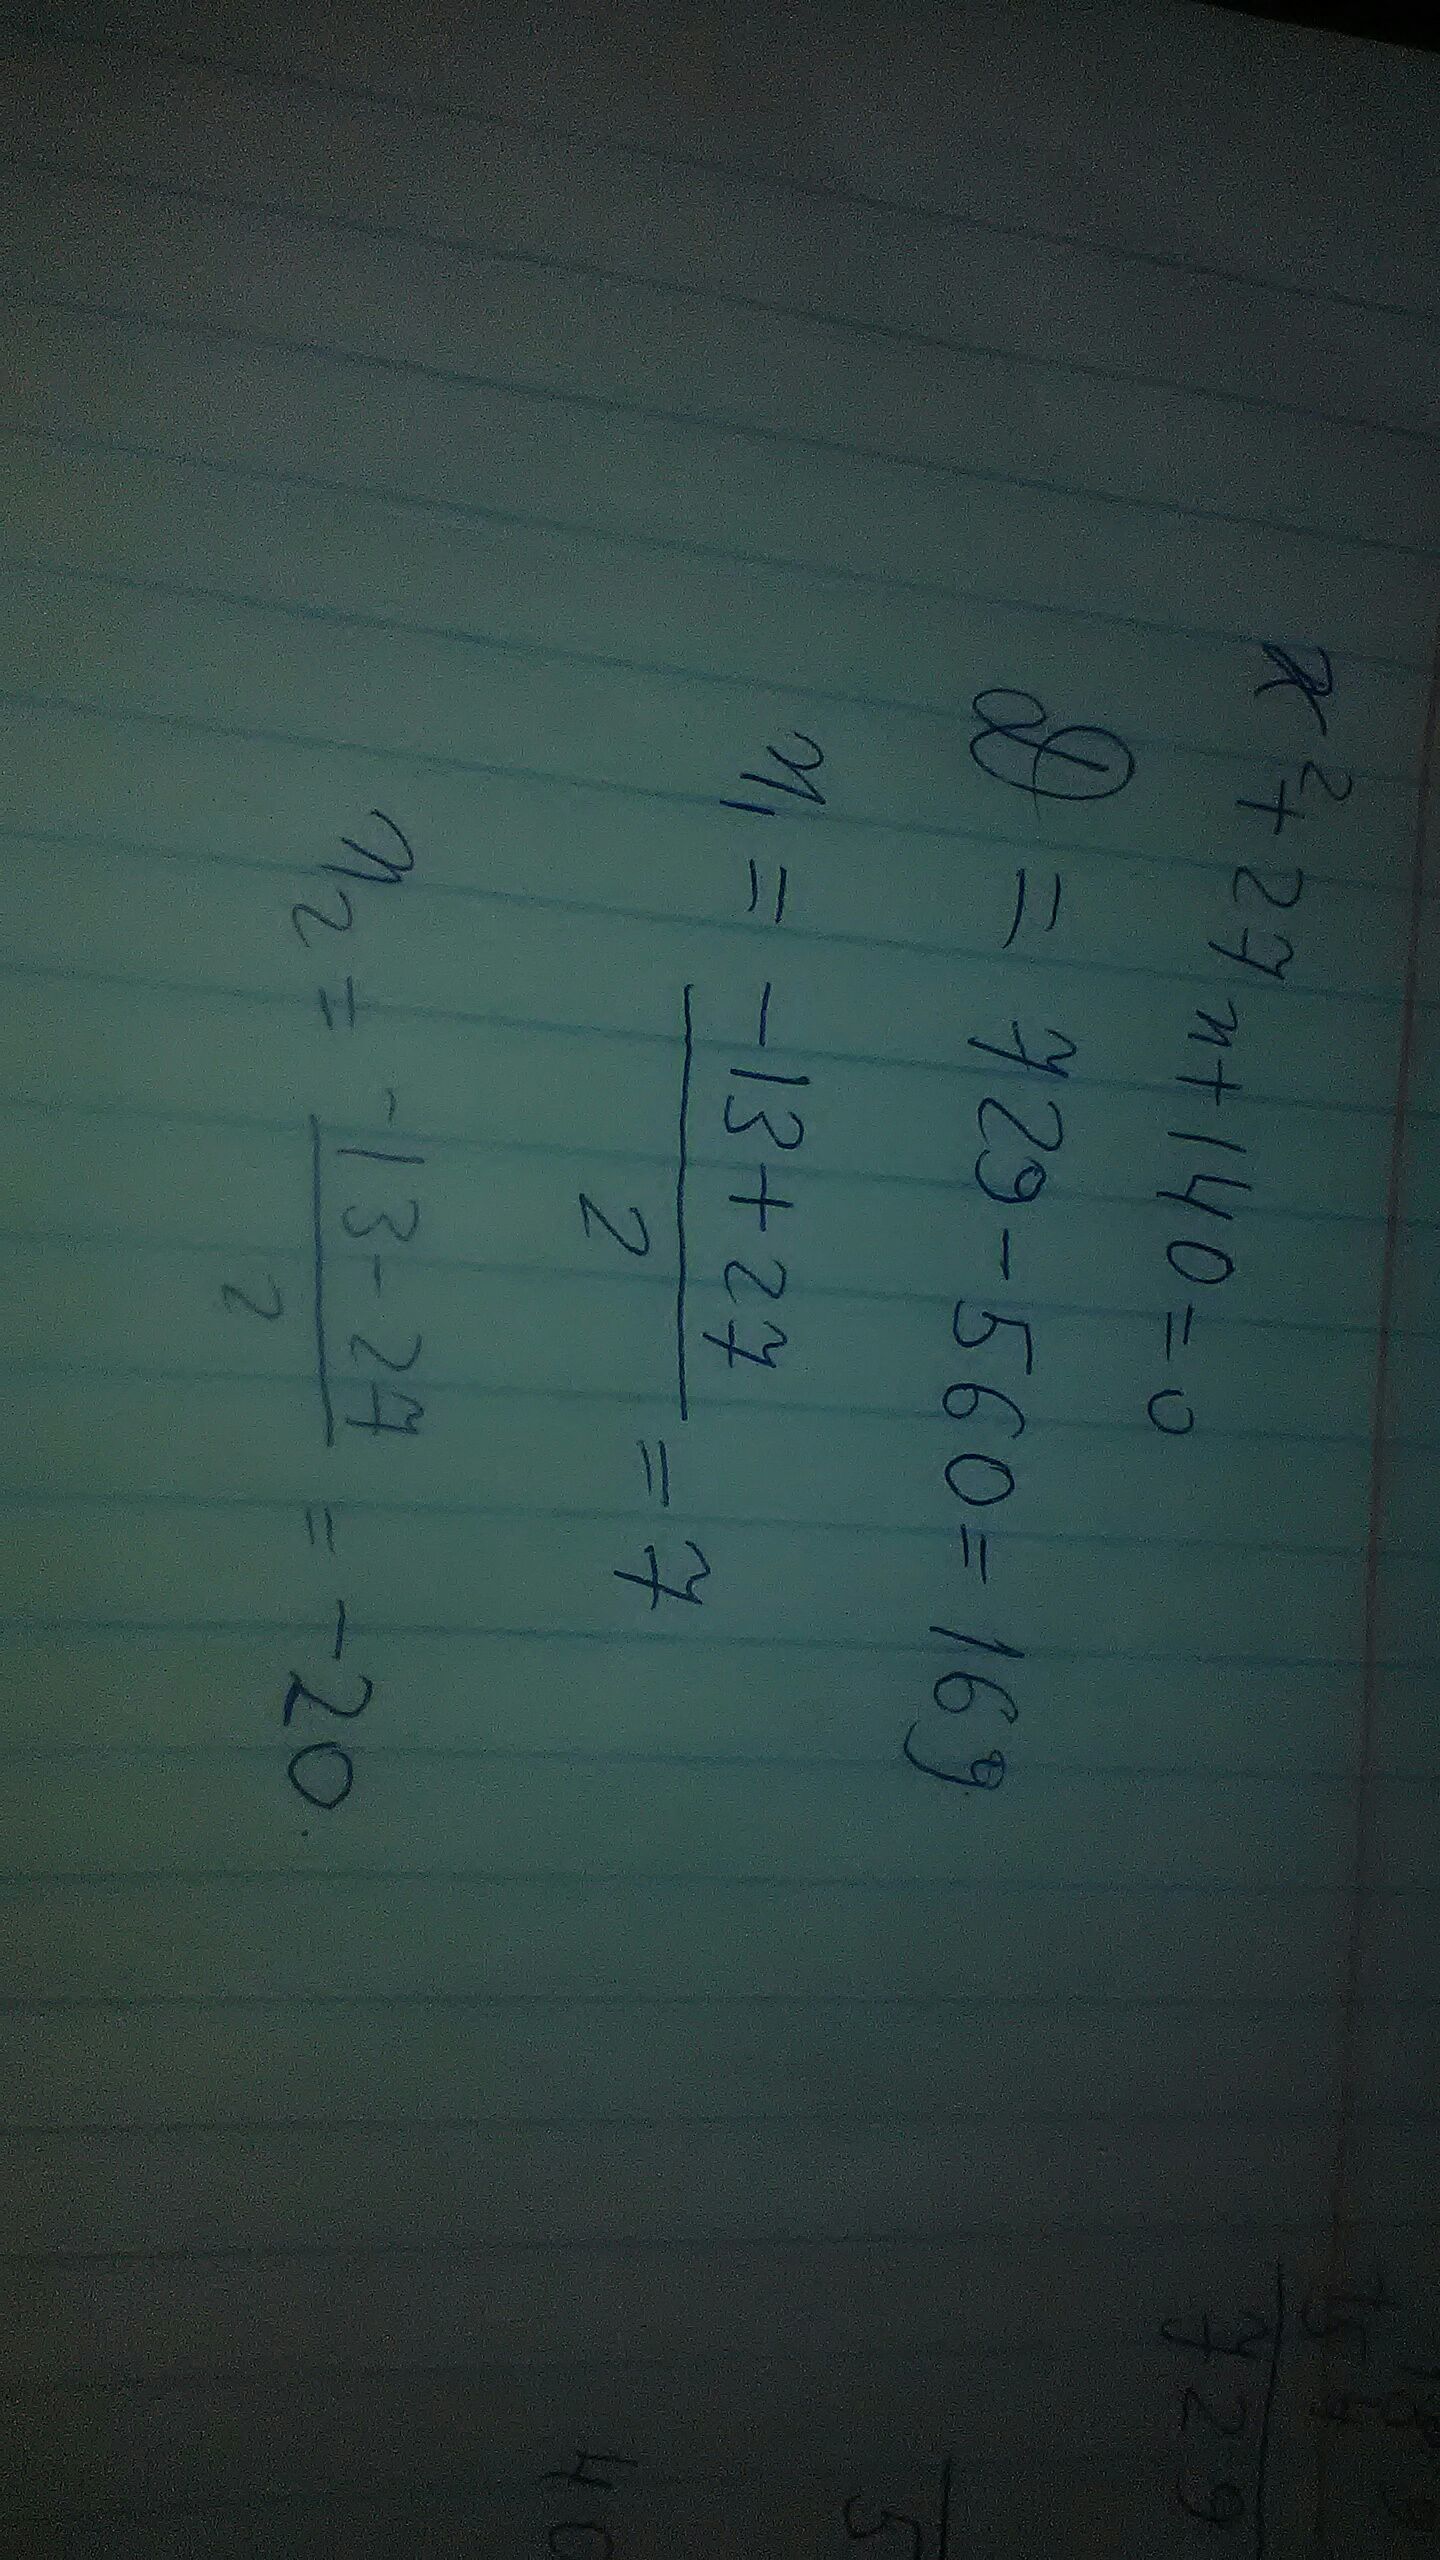 x² + 27x + 140 = 0
D = 729 - 560 = 169
x₁ = (-13 + 27)/2 = 7
x₂ = (-13 - 27)/2 = -20
729
5
40